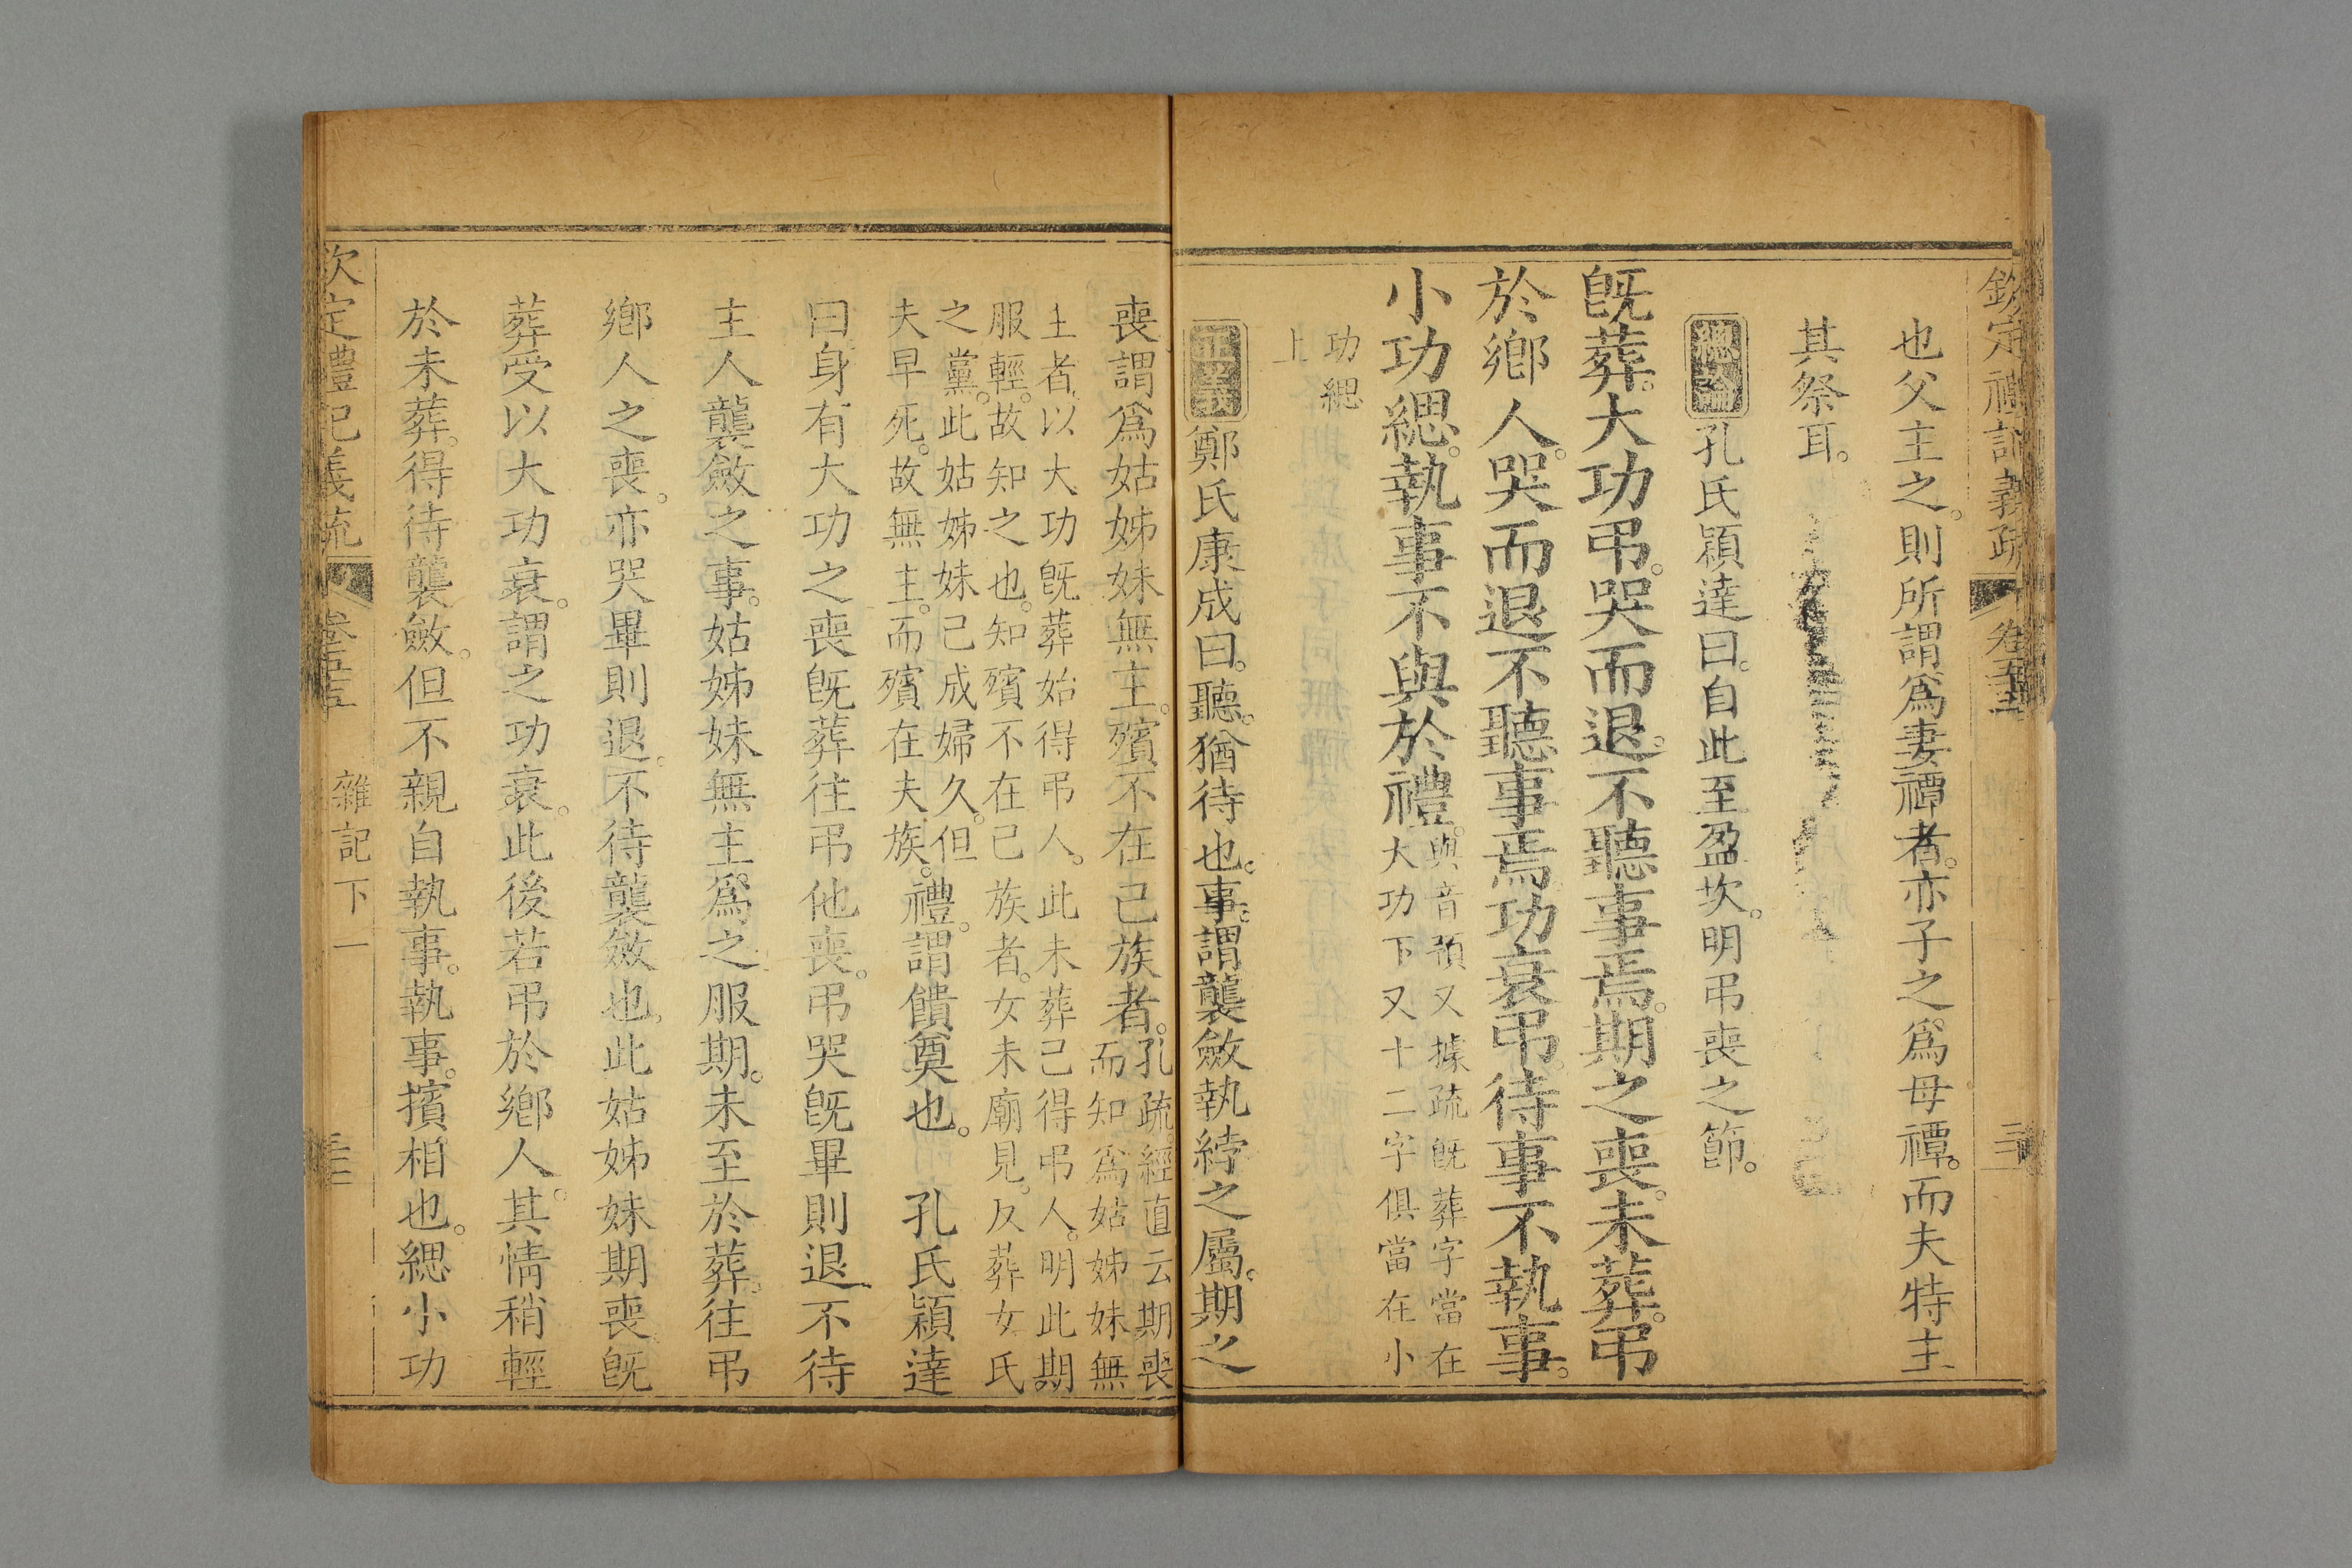 欽定禮記義疏 卷五十五
也父主之。則所謂爲妻禫者。亦子之爲母禫。而夫特主
其祭耳。
總論 孔氏穎達曰。自此至盈坎。明弔喪之節。
旣葬。大功弔。哭而退。不聽事焉。期之喪。未葬。弔
於鄉人。哭而退。不聽事焉。功衰弔。待事不執事。
小功緦。執事不與於禮。
與音預又據疏旣葬字當在
大功下又十二字俱當在小
功緦
上
正義 鄭氏康成曰。聽。猶待也。事。謂襲斂執綍之屬。期之
喪。謂爲姑姊妹無主。殯不在己族者。
孔疏。經直云期喪
而知爲姑姊妹無
主者。以大功旣葬始得弔人。此未葬已得弔人。明此期
服輕。故知之也。知殯不在已族者。女未廟見。反葬女氏
之黨。此姑姊妹已成婦久。但
夫早死。故無主。而殯在夫族。
禮。謂饋奠也。 孔氏穎達
曰。身有大功之喪旣葬往弔他喪。弔哭旣畢則退不待
主人襲斂之事。姑姊妹無主。爲之服期。未至於葬。往弔
鄉人之喪。亦哭畢則退。不待襲斂也。此姑姊妹期喪旣
葬受以大功衰。謂之功衰。此後若弔於鄉人。其情稍輕
於未葬。得待襲斂。但不親自執事。執事。擯相也。緦小功
欽定禮記義疏 雜記下一